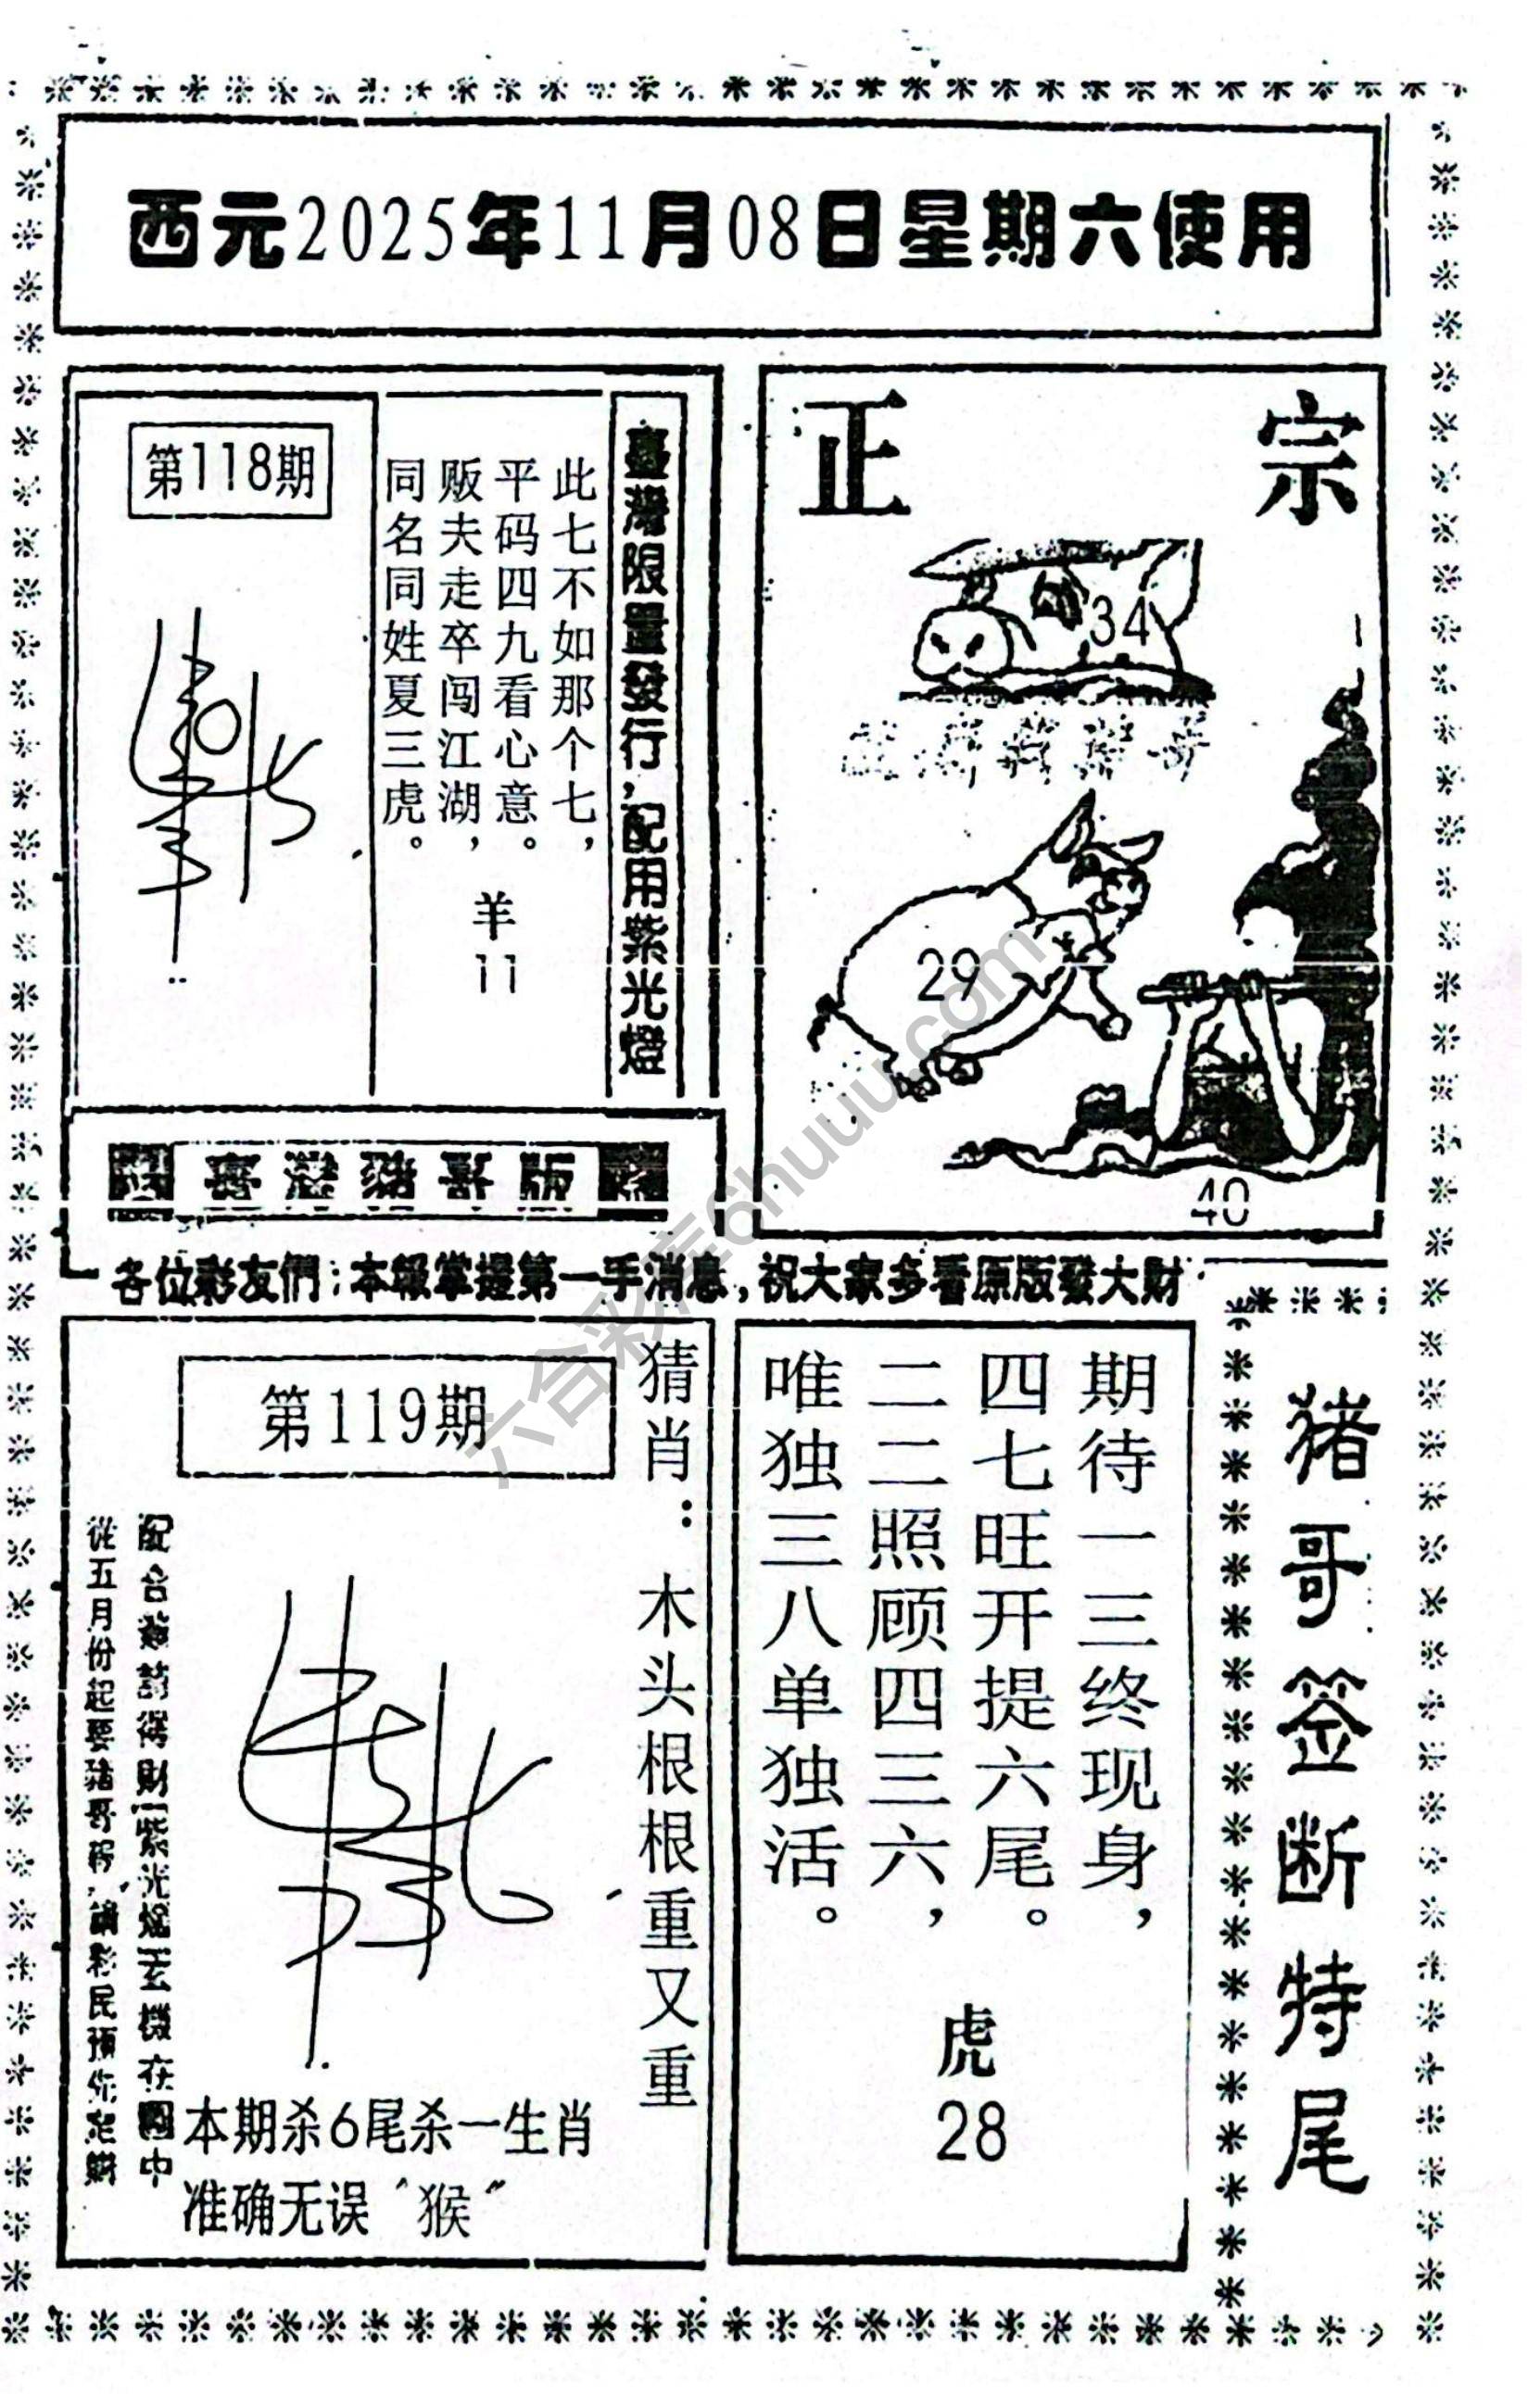 西元2025年11月08日星期六使用
第118期
臺灣限量發行,配用紫光燈
此七不如那个七,
平码四九看心意。
贩夫走卒闯江湖,
同名同姓夏三虎。
羊
11
正宗
34
29
40
臺灣豬哥版
各位彩友們:本報掌握第一手消息,祝大家多看原版發大財
第119期
猜肖: 木头根根重又重
從五月份起要豬哥
本期杀6尾杀一生肖
准确无误"猴"
期待一三终现身,
四七旺开提六尾。
二二照顾四三六,
唯独三八单独活。
虎
28
猪哥签断特尾
六合彩库6huuu.com